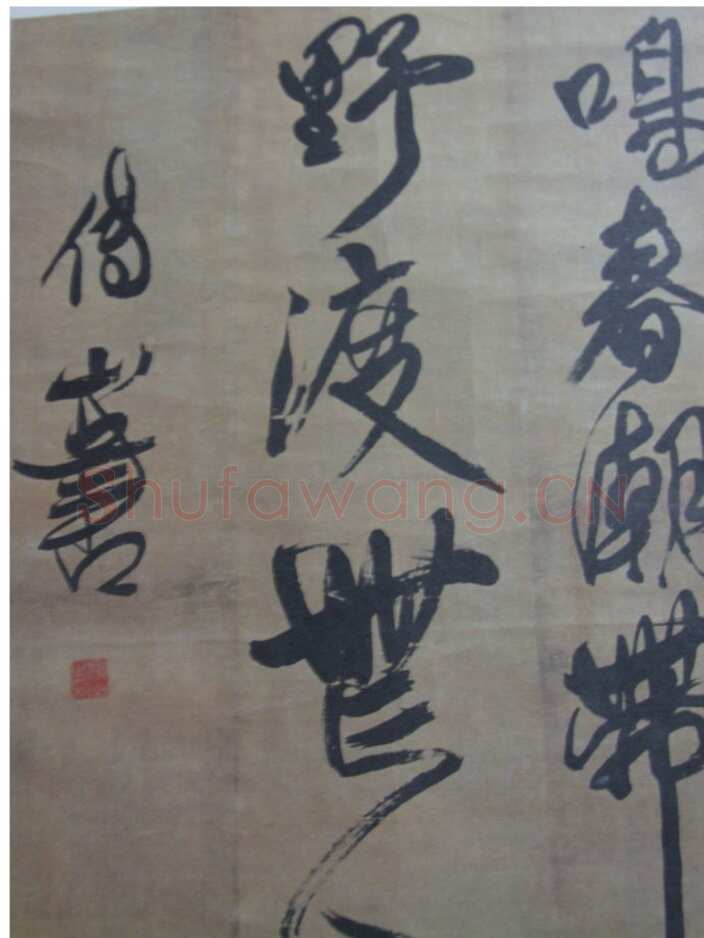 鳴春潮帶
野渡無人
傅山書
Shufawang.CN